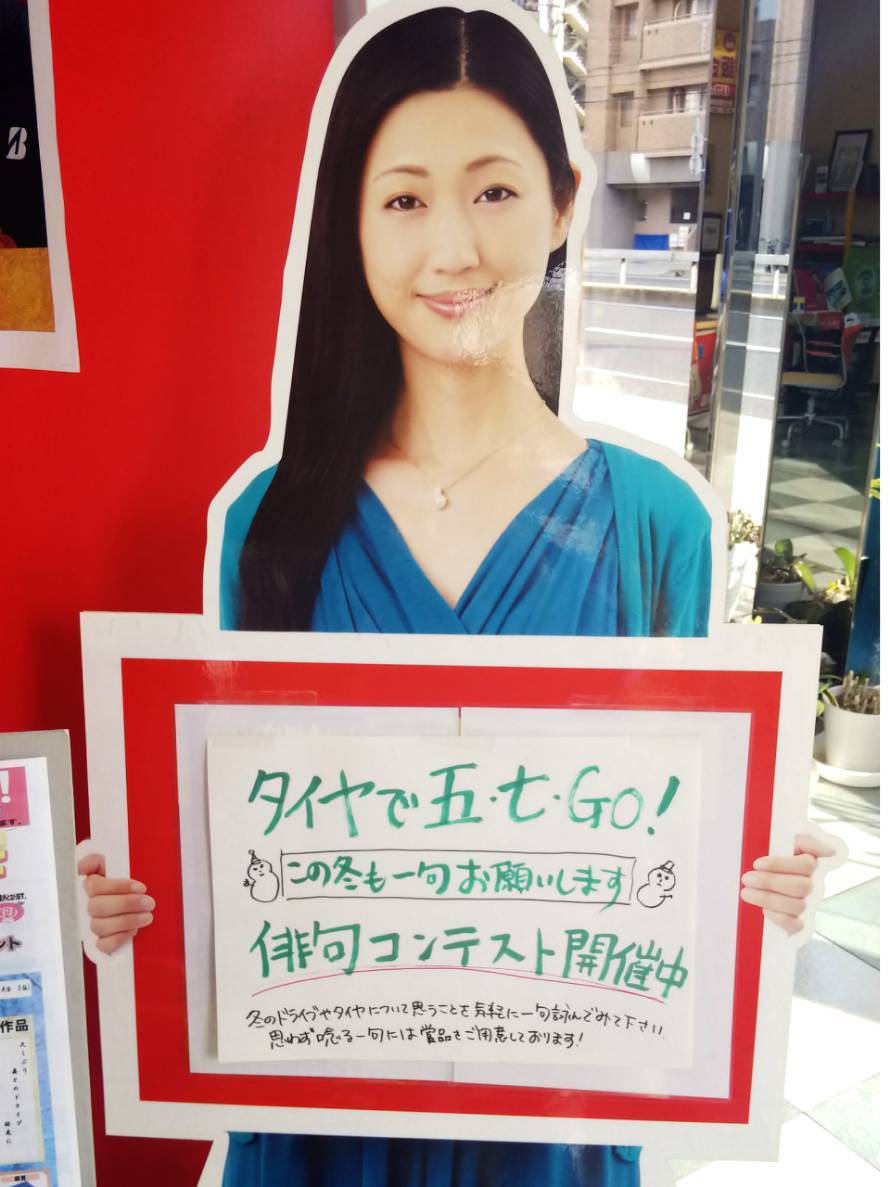 タイヤで五・七・GO!
この冬も一句お願いします
俳句コンテスト開催中
冬のドライブやタイヤについて思うことを気軽に一句詠んでみて下さい
思わず唸る一句には賞品をご用意しております!
B
ント
作品